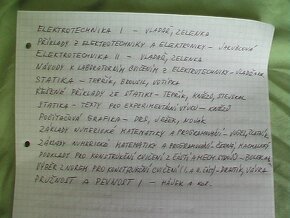 ELEKTROTECHNIKA I - VLADAŘ, ZELENKA
PŘÍKLADY Z ELEKTROTECHNIKY A ELEKTRONIKY -
ELEKTROTECHNIKA II - VLADAŘ, ZELENKA
NÁVODY K LABORATORNÍM CVIČENÍM Z ELEKTROTECHNIKY -
STATIKA - TEPŘÍK,
ŘEŠENÉ PŘÍKLADY ZE STATIKY - TEPŘÍK,
STATIKA - TEXTY PRO EXPERIMENTÁLNÍ VÝUKU -
POČÍTAČOVÁ GRAFIKA - DRS, JEŽEK, NOVÁK
ZÁKLADY NUMERICKÉ MATEMATIKY A PROGRAMOVÁNÍ -
ZÁKLADY NUMERICKÉ MATEMATIKY A PROGRAMOVÁNÍ - ČERNÝ,
PODKLADY PRO KONSTRUKČNÍ CVIČENÍ Z ČÁSTÍ A MECH. STROJŮ -
VÝBĚR Z NOREM PRO KONSTRUKČNÍ CVIČENÍ
PRUŽNOST A PEVNOST I - HÁJEK A KOL.